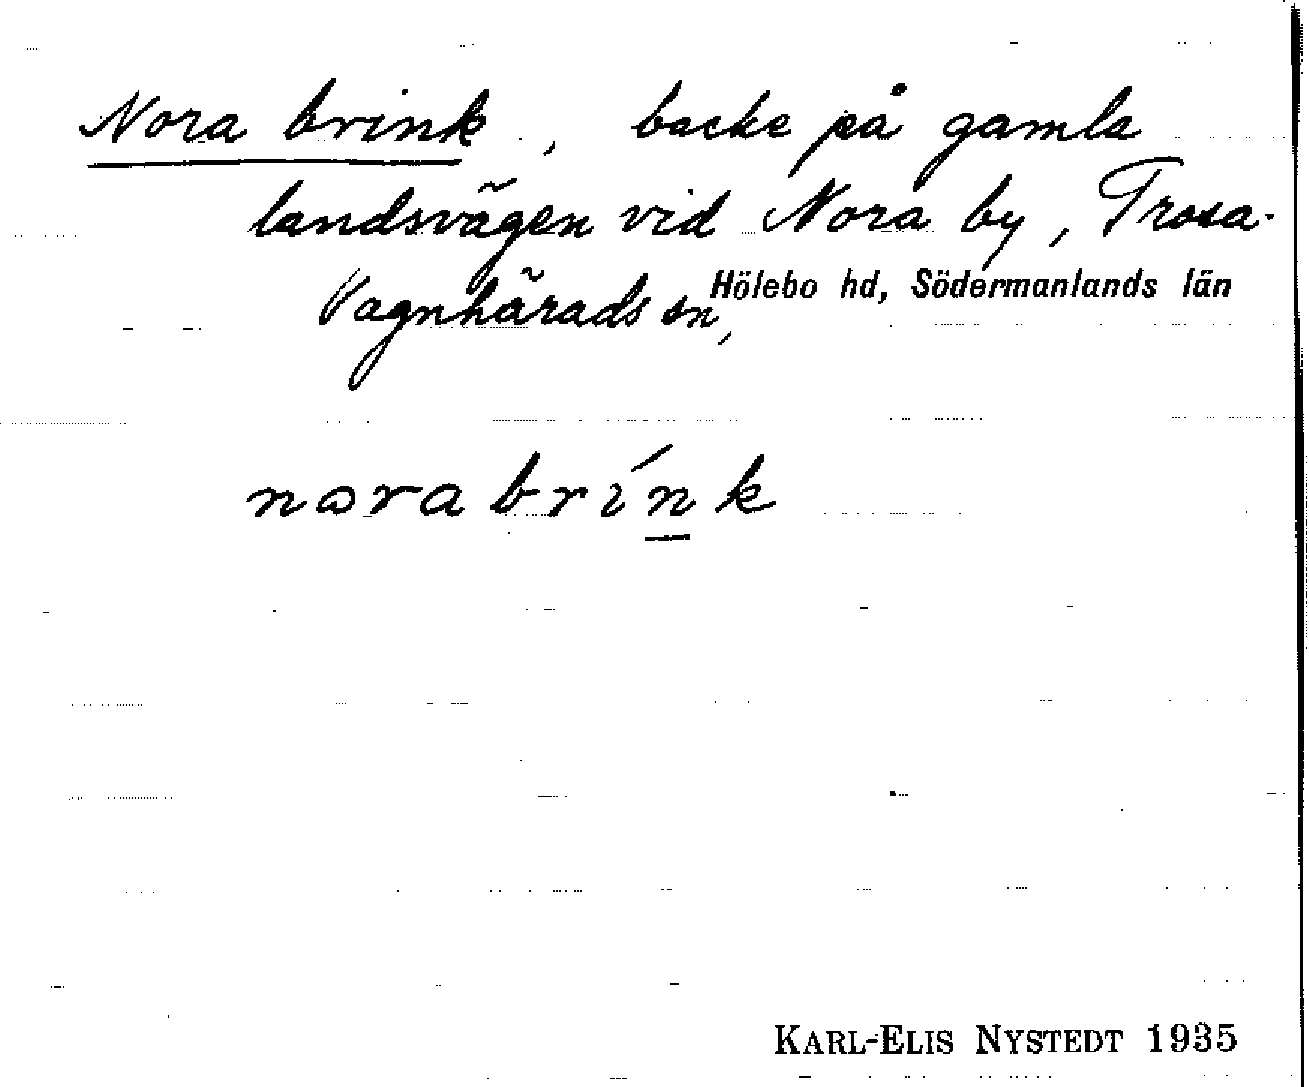 Nora brink, backe på gamla
landsvägen vid Nora by, Trosa-
Vagnhärads sn, Hölebo hd, Södermanlands län
nɷra brínk
KARL-ELIS NYSTEDT 1935